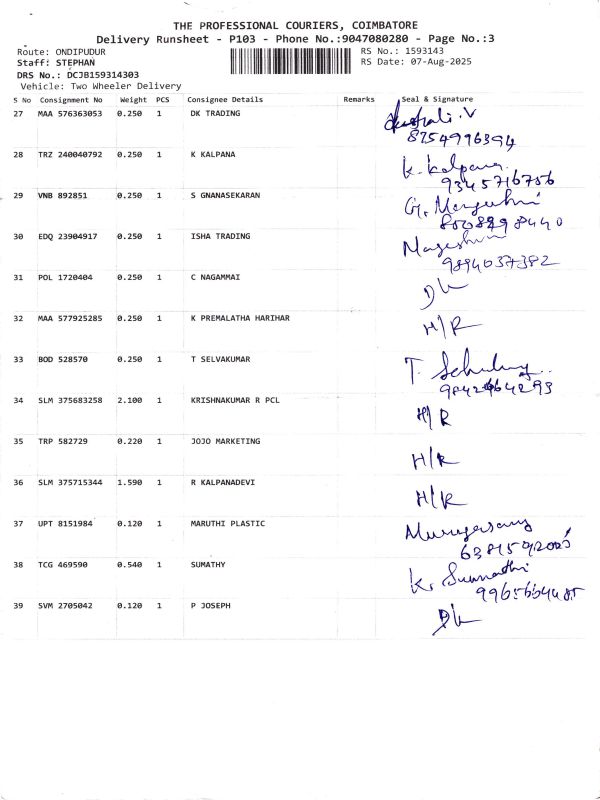 THE PROFESSIONAL COURIERS, COIMBATORE
Delivery Runsheet - P103 - Phone No.:9047080280 - Page No.:3
Route: ONDIPUDUR
RS No.: 1593143
Staff: STEPHAN
RS Date: 07-Aug-2025
DRS No.: DCJB159314303
Vehicle: Two Wheeler Delivery
S No Consignment No Weight PCS Consignee Details Remarks Seal & Signature
27 MAA 576363053 0.250 1 DK TRADING
V
8754996394
28 TRZ 240040792 0.250 1 K KALPANA K. Kalpana
9345716756
29 VNB 892851 0.250 1 S GNANASEKARAN
30 EDQ 23904917 0.250 1 ISHA TRADING
9894037382
31 POL 1720404 0.250 1 C NAGAMMAI D/L
32 MAA 577925285 0.250 1 K PREMALATHA HARIHAR H/R
33 BOD 528570 0.250 1 T SELVAKUMAR T.
34 SLM 375683258 2.100 1 KRISHNAKUMAR R PCL H/R
35 TRP 582729 0.220 1 JOJO MARKETING H/R
36 SLM 375715344 1.590 1 R KALPANADEVI H/R
37 UPT 8151984 0.120 1 MARUTHI PLASTIC
38 TCG 469590 0.540 1 SUMATHY K. Sumathi
39 SVM 2705042 0.120 1 P JOSEPH D/L